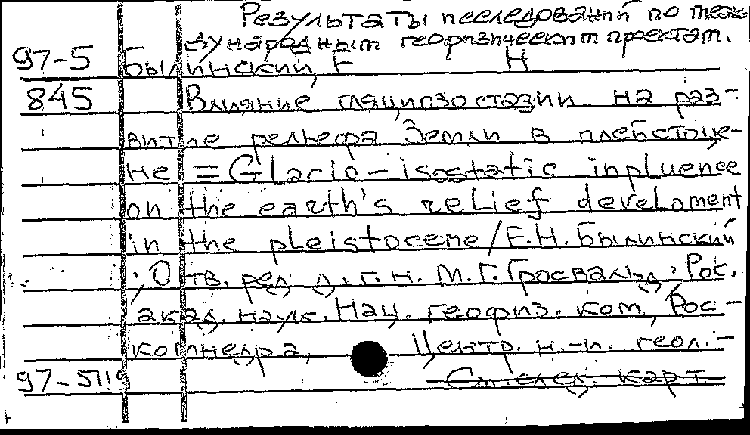 Результаты исследований по меж-
дународным геофизическим проектам.
97-5 Былинский, Е Н
845 Влияние гляциоизостазии на раз-
витие рельефа Земли в плейстоце-
не = Glacio-isostatic influence
on the earth's relief develoment
in the pleistocene / Е.Н. Былинский
; Отв. ред. д.г.н. М.Г. Гросвальд; Рос.
акад. наук. Нац. геофиз. ком., Рос-
комнедра, Центр. н.-и. геол.-
97-5119 См. след. карт